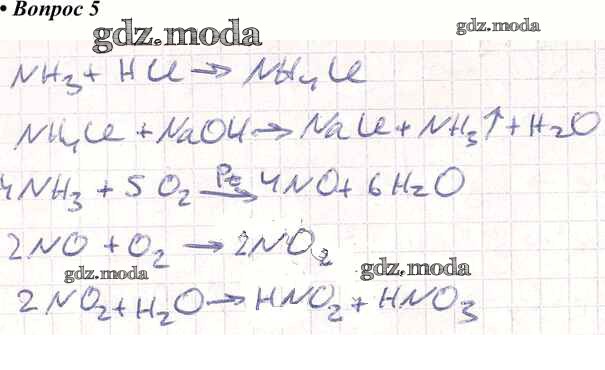 • Вопрос 5
gdz.moda
gdz.moda
NH₃ + HCl → NH₄Cl
NH₄Cl + NaOH → NaCl + NH₃↑ + H₂O
4NH₃ + 5O₂ →Pt 4NO + 6H₂O
2NO + O₂ → 2NO₂
gdz.moda
gdz.moda
2NO₂ + H₂O → HNO₂ + HNO₃